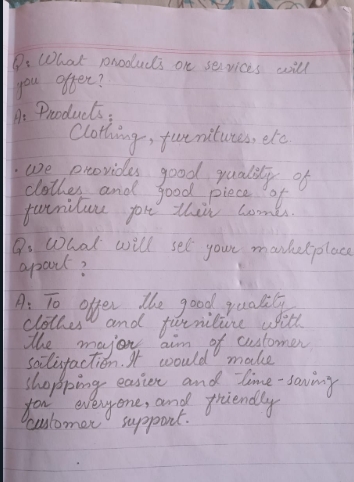 Q: What products or services will
you offer?
A: Products:
Clothing, furnitures, etc.
• We provides good quality of
clothes and good piece of
furniture for their homes.
Q: What will set your marketplace
apart?
A: To offer the good quality
clothes and furniture with
the major aim of customer
satisfaction. It would make
shopping easier and time-saving
for everyone, and friendly
customer support.